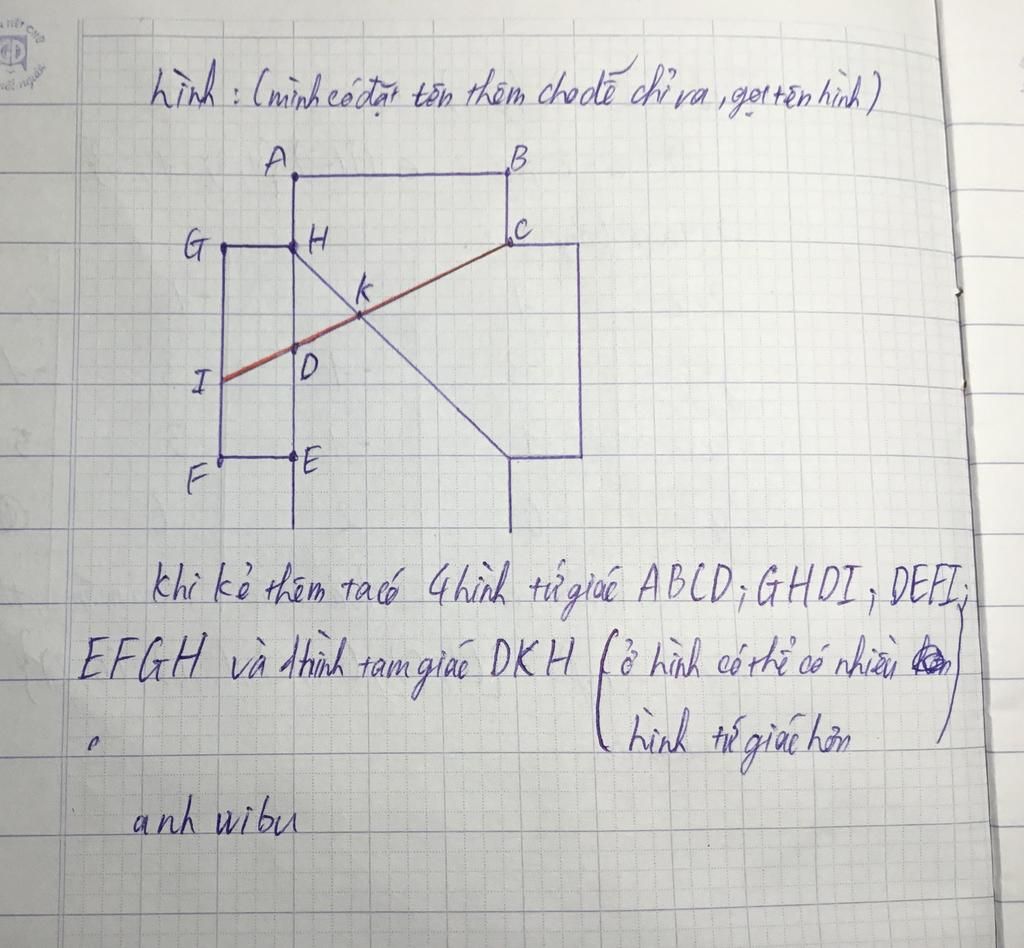 hình : (mình có đặt tên thêm cho dễ chỉ ra, gọi tên hình)
A
B
G
H
C
K
I
D
F
E
khi kẻ thêm ta có 4 hình tứ giác ABCD; GHDI; DEFI;
EFGH và 1 hình tam giác DKH (ở hình có thể có nhiều
hình tứ giác hơn)
anh wibu